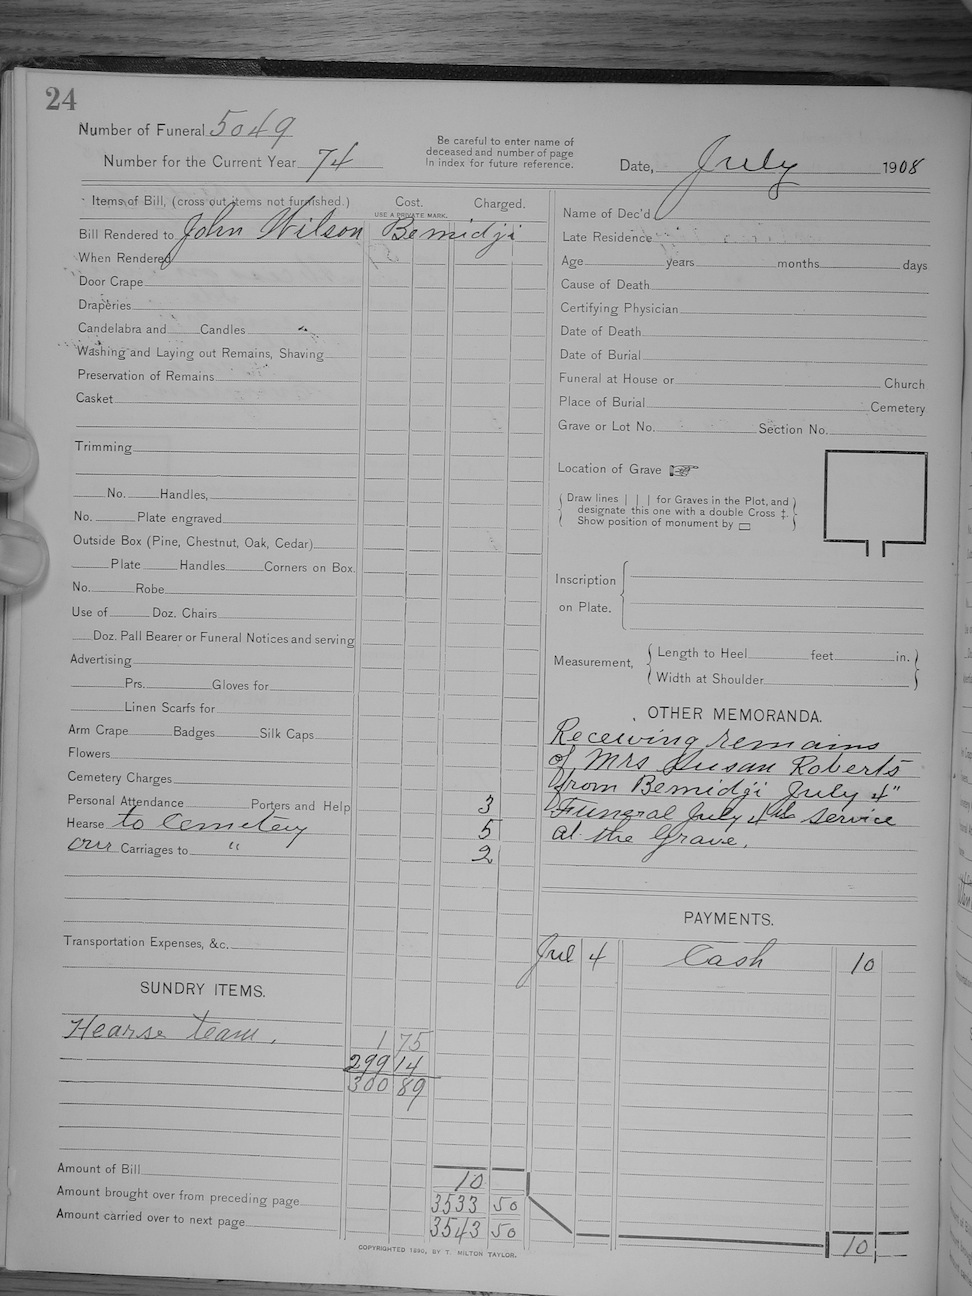 24
Number of Funeral 5049
Number for the Current Year 74
Be careful to enter name of
deceased and number of page
in index for future reference.
Date, July 1908
Items of Bill, (cross out items not furnished.) Cost. Charged.
USE A PRIVATE MARK.
Bill Rendered to John Wilson Bemidji
When Rendered
Door Crape
Draperies
Candelabra and Candles
Washing and Laying out Remains, Shaving
Preservation of Remains
Casket
Trimming
No. Handles,
No. Plate engraved
Outside Box (Pine, Chestnut, Oak, Cedar)
Plate Handles Corners on Box.
No. Robe
Use of Doz. Chairs
Doz. Pall Bearer or Funeral Notices and serving
Advertising
Prs. Gloves for
Linen Scarfs for
Arm Crape Badges Silk Caps
Flowers
Cemetery Charges
Personal Attendance Porters and Help 3
Hearse to Cemetery 5
Carriages to " 2
Transportation Expenses, &c.
SUNDRY ITEMS.
Hearse team. 1 75
299 14
300 89
Amount of Bill 10
Amount brought over from preceding page 3533 50
Amount carried over to next page 3543 50
COPYRIGHTED 1890, BY T. MILTON TAYLOR.
Name of Dec'd
Late Residence
Age years months days
Cause of Death
Certifying Physician
Date of Death
Date of Burial
Funeral at House or Church
Place of Burial Cemetery
Grave or Lot No. Section No.
Location of Grave
Draw lines | | | for Graves in the Plot, and
designate this one with a double Cross ‡.
Show position of monument by
Inscription
on Plate.
Measurement, Length to Heel feet in.
Width at Shoulder
OTHER MEMORANDA.
Receiving remains
of Mrs Susan Roberts
from Bemidji July 4"
Funeral July 4th service
at the Grave.
PAYMENTS.
Jul 4 Cash 10
10